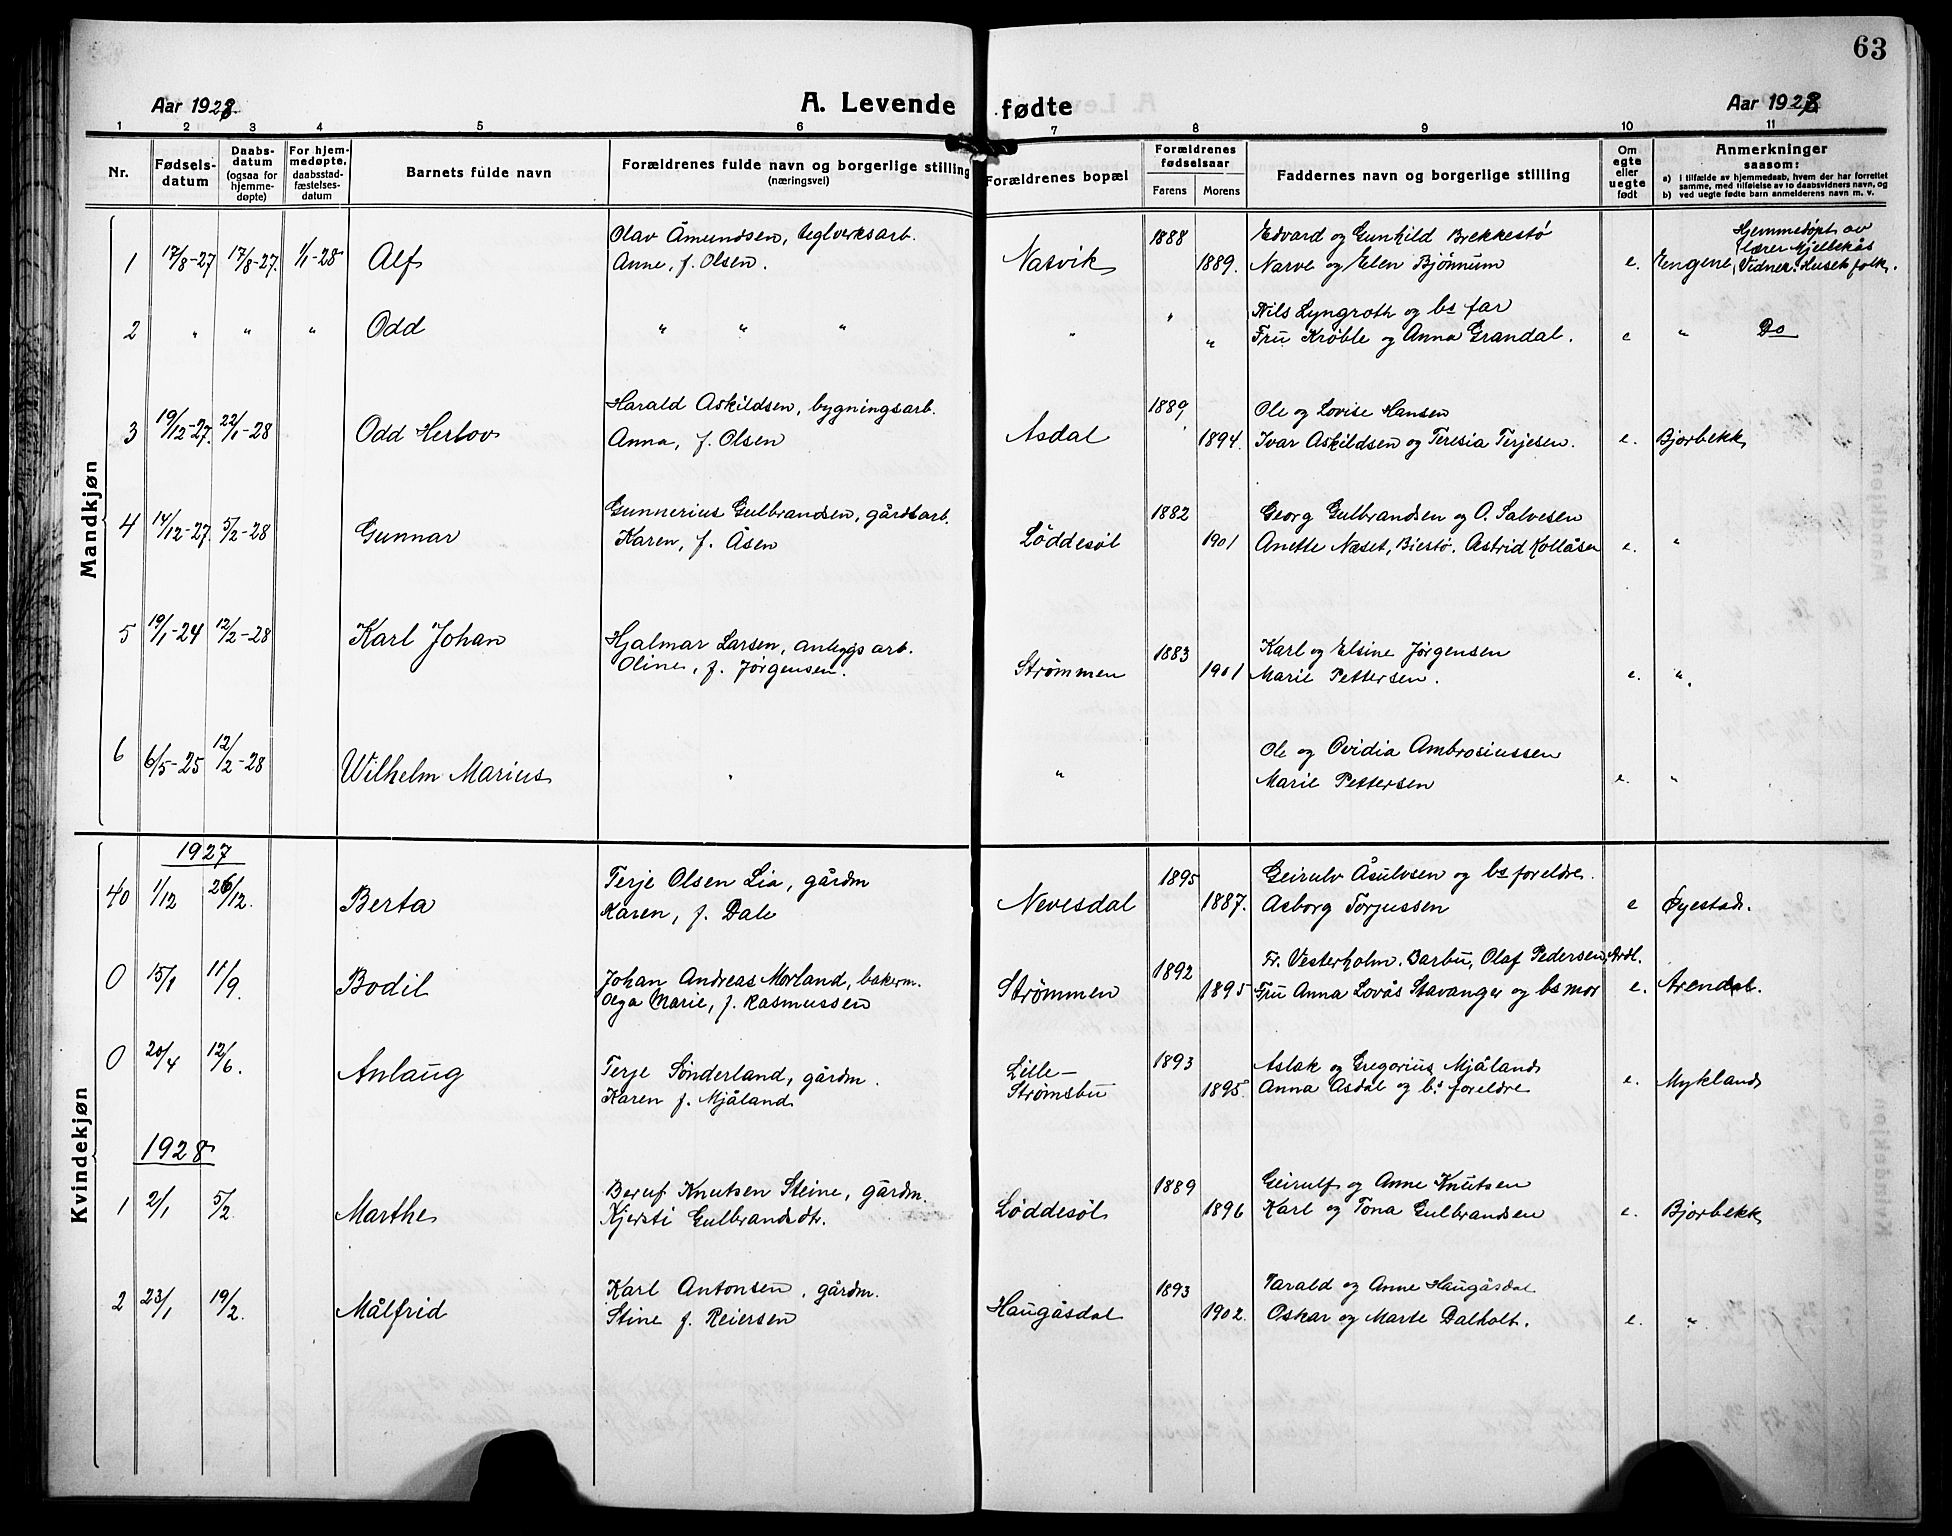 63
Aar 1928. A. Levende fødte Aar 1928
1 2 3 4 5 6 7 8 9 10 11
Nr. Fødsels-datum Daabs-datum (ogsaa for hjemme-døpte) For hjem-medøpte, daabsstad-fæstelses-datum Barnets fulde navn Forældrenes fulde navn og borgerlige stilling (næringsvei) Forældrenes bopæl Forældrenes fødselsaar Farens Morens Faddernes navn og borgerlige stilling Om egte eller uegte født Anmerkninger saasom:
a) I tilfælde av hjemmedaab, hvem der har forrettet samme, med tilføielse av to daabsvidners navn, og
b) ved uegte fødte barn anmelderens navn m. v.
Mandkjøn
Olav Åmundsen, teglverksarb. 1888 Edvard og Gunhild Brekkestø Hjemmedøpt av
1 17/8-27 17/8-27. 1/1-28 Alf Anne, f. Olsen. Nasvik 1889. Narve og Elen Bjønnum e. Engene, lærer Mjelbekås Vidner: Husets folk.
Nils Lyngroth og bs far
2 " " " Odd " " " " " " Fru Krøble og Anna Grandal. e " Do
Harald Askildsen, bygningsarb. 1889 Ole og Lovise Hansen
3 19/12-27. 22/1-28 Odd Herlov Anna, f. Olsen Asdal 1894. Ivar Askildsen og Teresia Terjesen. e. Bjorbekk
Gunnerius Gulbrandsen, gårdsarb. 1882 Georg Gulbrandsen og O. Salvesen
4 14/12-27. 5/2-28 Gunnar Karen, f. Åsen Løddesøl 1901 Anette Næset, Biestø. Astrid Kollåsen e. "
5 19/1-24 12/2-28 Karl Johan Hjalmar Larsen, anleggsarb. 1883 Karl og Elsine Jørgensen
Oline, f. Jørgensen. Strømmen 1901 Marie Pettersen. e. ".
6 6/5-25 12/2-28 Ole og Ovidia Ambrosiussen
Wilhelm Marius " " Marie Pettersen e. "
Kvindekjøn
1927
Terje Olsen Lia, gårdm 1895 Geirulv Åsulvsen og bs foreldre.
40 1/12 26/12. Berta Karen, f. Dale Nevesdal 1887. Asborg Torjussen e Øyestad.
Fr. Vesterholm. Barbu, Olaf Pedersen, Ardl.
0 15/1 11/9. Bodil Johan Andreas Morland, bakerm. 1892
Olga Marie, f. Rasmussen Strømmen 1895 Fru Anna Lovås Stavanger og bs mor e. Arendal.
0 20/4 12/6. Anlaug Terje Sønderland, gårdm. Lille- 1893 Aslak og Gregorius Mjåland
Karen f. Mjåland Strømsbu 1895. Anna Asdal og bs foreldre e. Mykland
1928
Beruf Knutsen Steine, gårdm. 1889 Geirulf og Anne Knutsen
1 2/1 5/2 Marthe Kjersti Gulbrandsdtr. Løddesøl 1896 Karl og Tona Gulbrandsen e. Bjorbekk
Karl Antonsen, gårdm. 1893 Tarald og Anne Haugåsdal
2 23/1 19/2. Målfrid Stine f. Reiersen Haugåsdal 1902. Oskar og Marte Dalholt. e. "